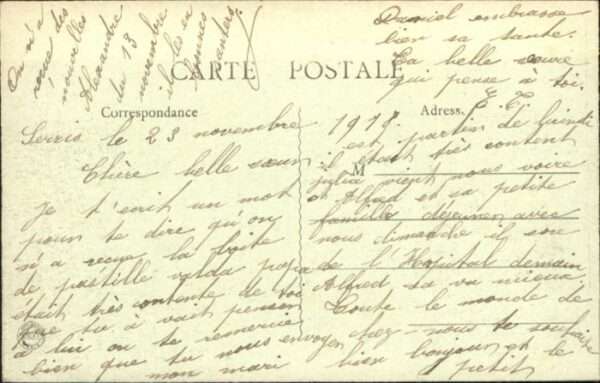 CARTE POSTALE
Correspondance
Adresse
Serris le 23 novembre 1918.
Chère belle sœur
Je t'ecrit un mot
pour te dire qu'on
n'a reçue la boite
de pastille valda papa
était très contente de toi
que tu à vait penser
à lui on te remercie
bien que tu nous envoyer
mon mari
est partir de lundi
il était très contente
julia vient nous voire
M
Alfred et sa petite
famille déjeuner avec
nous dimanche il sor
de l'Hopital demain
Alfred, sa va mieux
Toute le monde de
chez nous te souhaite
bien bonjour et le
petit
Daniel embrasse
bien sa tante.
Ta belle sœure
qui pense à toi.
On n'a
reçue des
nouvelles
Alexandre
du 13
novembre
il et en